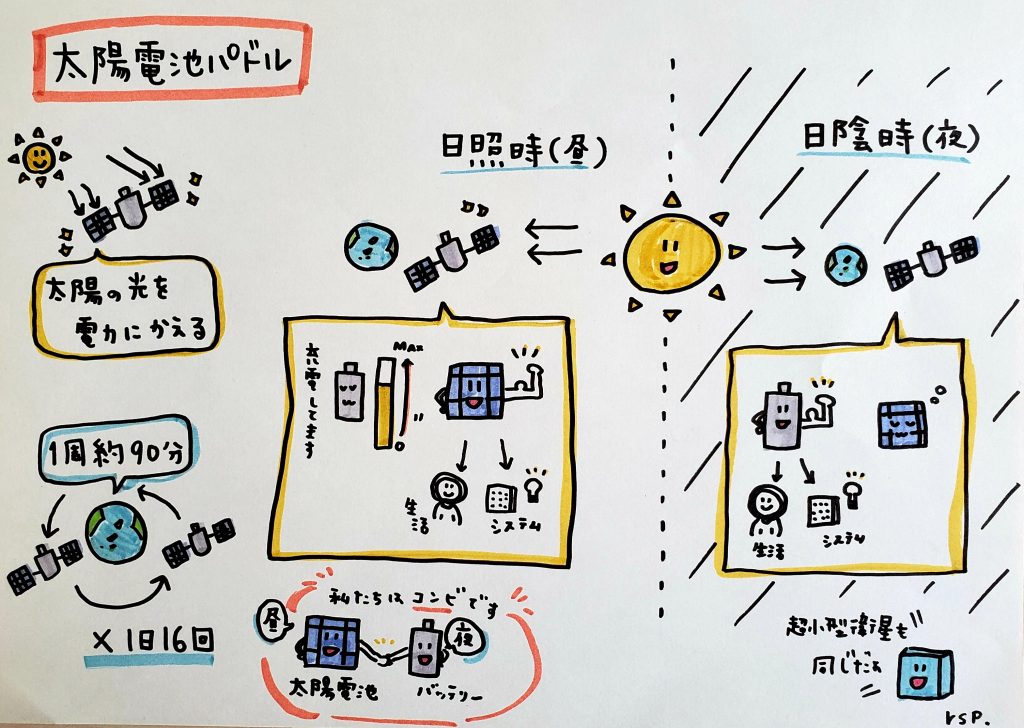 太陽電池パドル
太陽の光を
電力にかえる
1周約90分
×1日16回
日照時(昼)
充電してます
MAX
0
生活
システム
私たちはコンビです
昼
夜
太陽電池
バッテリー
日陰時(夜)
生活
システム
超小型衛星も
同じだよ
rsp.